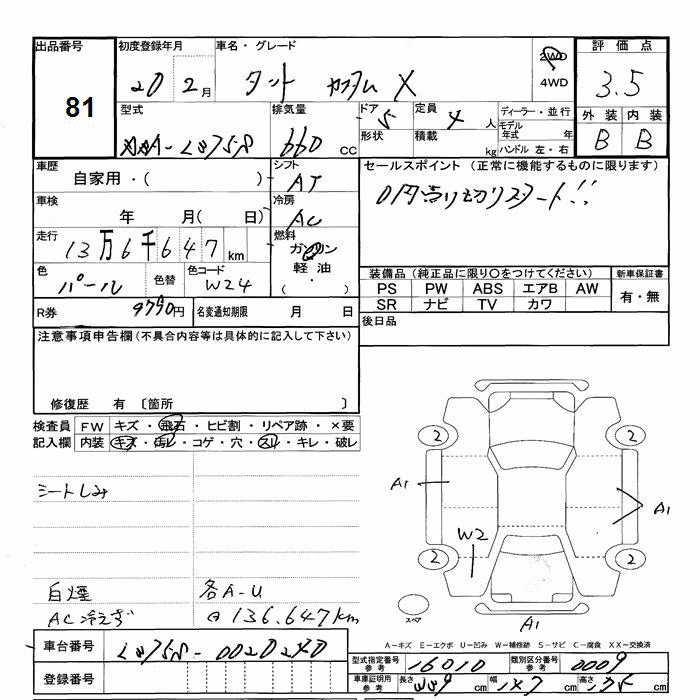 出品番号 初度登録年月 車名・グレード 2WD 4WD 評価点
81 20 2月 タント カスタム X 3.5
型式 排気量 ドア 5 定員 4人 ディーラー・並行 外装 内装
660 cc 形状 積載 kg モデル年式 年 B B
ハンドル 左・右
車歴 シフト セールスポイント (正常に機能するものに限ります)
自家用・( ) AT 0円売り切りスタート!!
車検 冷房
年 月( 日) AC
走行 燃料
13万6千647km ガソリン
色 色替 色コード 軽油
パール W24 (・)
装備品 (純正品に限り○をつけてください) 新車保証書
PS PW ABS エアB AW 有・無
SR ナビ TV カワ
R券 9790円 名変通知期限 月 日 後日品
注意事項申告欄 (不具合内容等は具体的に記入して下さい)
修復歴 有 〔箇所 〕
検査員 FW キズ・飛石・ヒビ割・リペア跡・×要
記入欄 内装 キズ・汚レ・コゲ・穴・スレ・キレ・破レ
2 2
シートしみ
A1 A1
W2
2 2
白煙 各A-U
AC冷えず 136.647km
スペア A1
A-キズ E-エクボ U-凹み W-補修跡 S-サビ C-腐食 XX-交換済
車台番号 L375S-0020240
型式指定番号 参考 16010 類別区分番号 参考 0009
登録番号
車庫証明用 参考 長さ 339 cm 幅 147 cm 高さ 175 cm